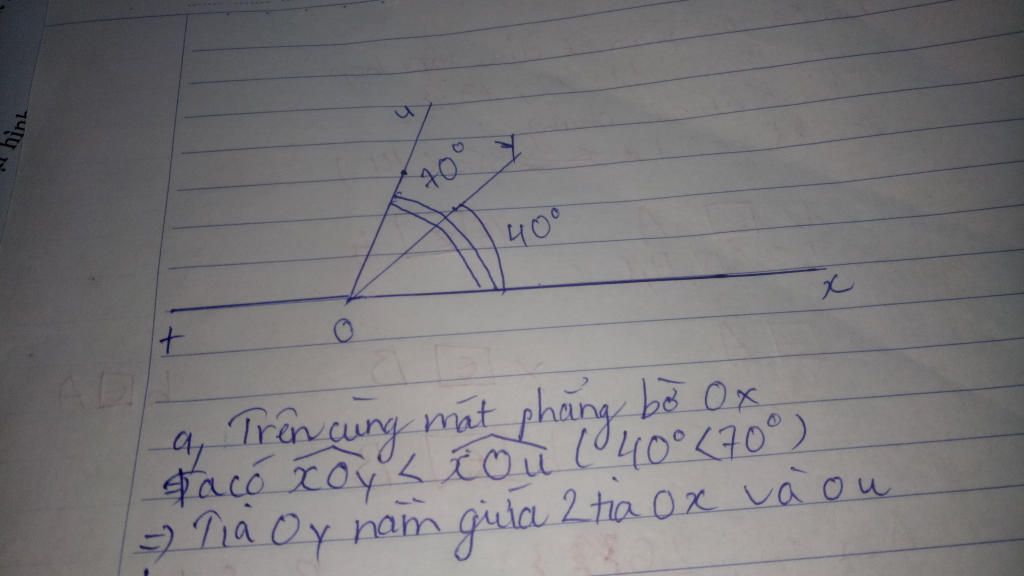 hình
u
70°
y
40°
x
t
O
a, Trên cùng mặt phẳng bờ Ox
Ta có xOy < xOu ( 40° < 70° )
=> Tia Oy nằm giữa 2 tia Ox và Ou